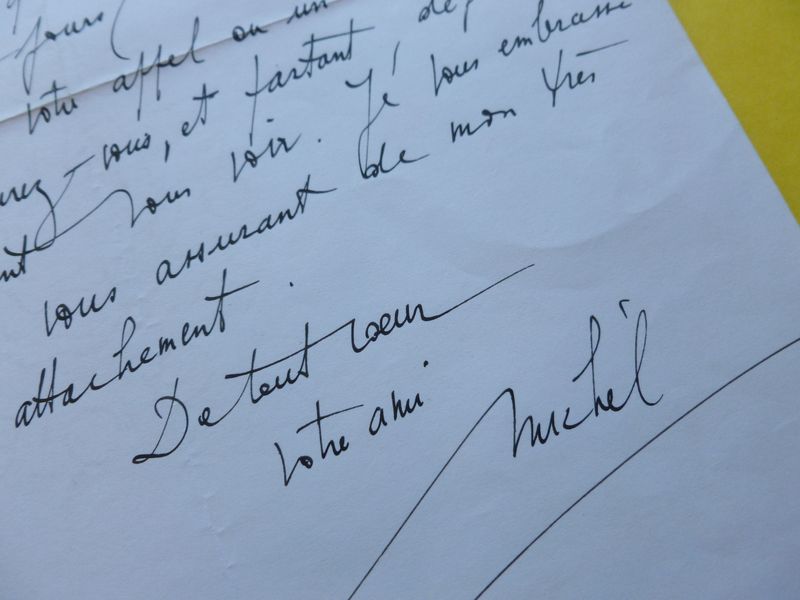 jours
votre appel ou un
-vous, et partant,
vous voir. Je vous embrasse
vous assurant de mon très
attachement.
De tout cœur
votre ami
Michel